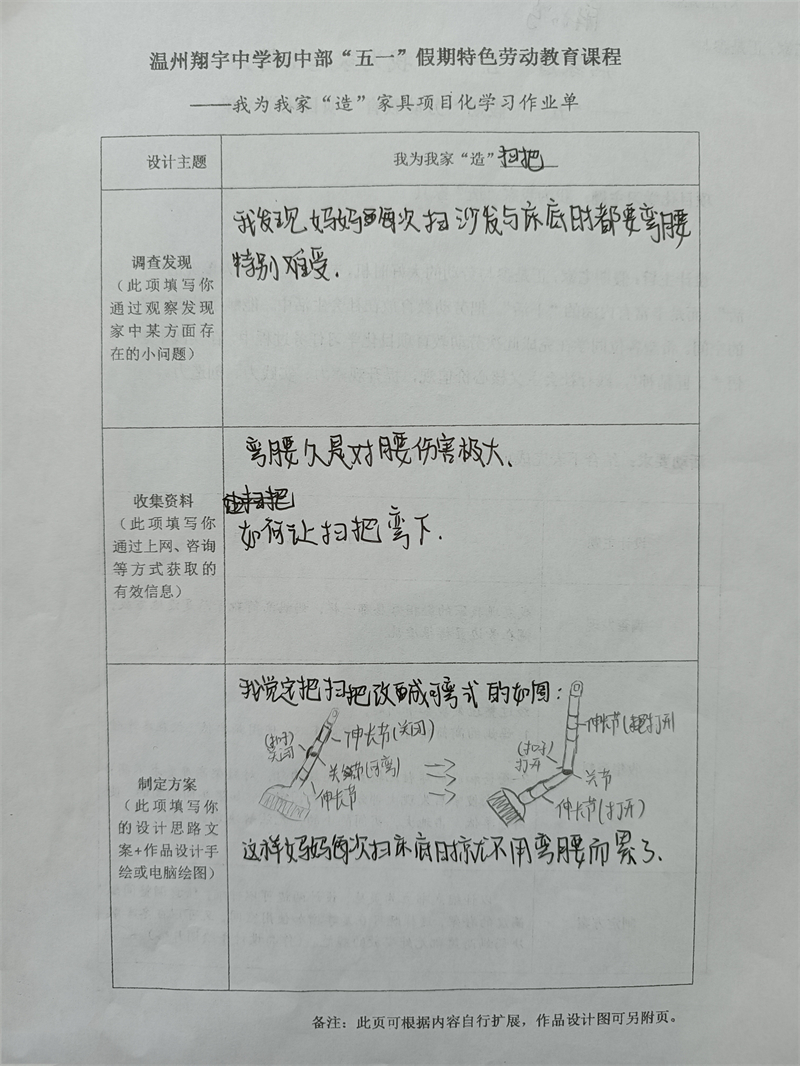 温州翔宇中学初中部“五一”假期特色劳动教育课程
——我为我家“造”家具项目化学习作业单
设计主题
我为我家“造”扫把
调查发现
(此项填写你
通过观察发现
家中某方面存
在的小问题)
我发现妈妈每次扫沙发与床底时都要弯腰
特别难受.
收集资料
(此项填写你
通过上网、咨询
等方式获取的
有效信息)
弯腰久是对腰伤害极大、
如何让扫把弯下.
制定方案
(此项填写你
的设计思路文
案+作品设计手
绘或电脑绘图)
我觉定把扫把改碱可弯式的如图:
(扣子)
关闭
伸长节(关闭)
关节(可弯)
伸长节
伸长节(打开
(扣子)
打开
关节
伸长节(打开)
这样妈妈每次扫床底时就不用弯腰而累了.
备注:此页可根据内容自行扩展,作品设计图可另附页。